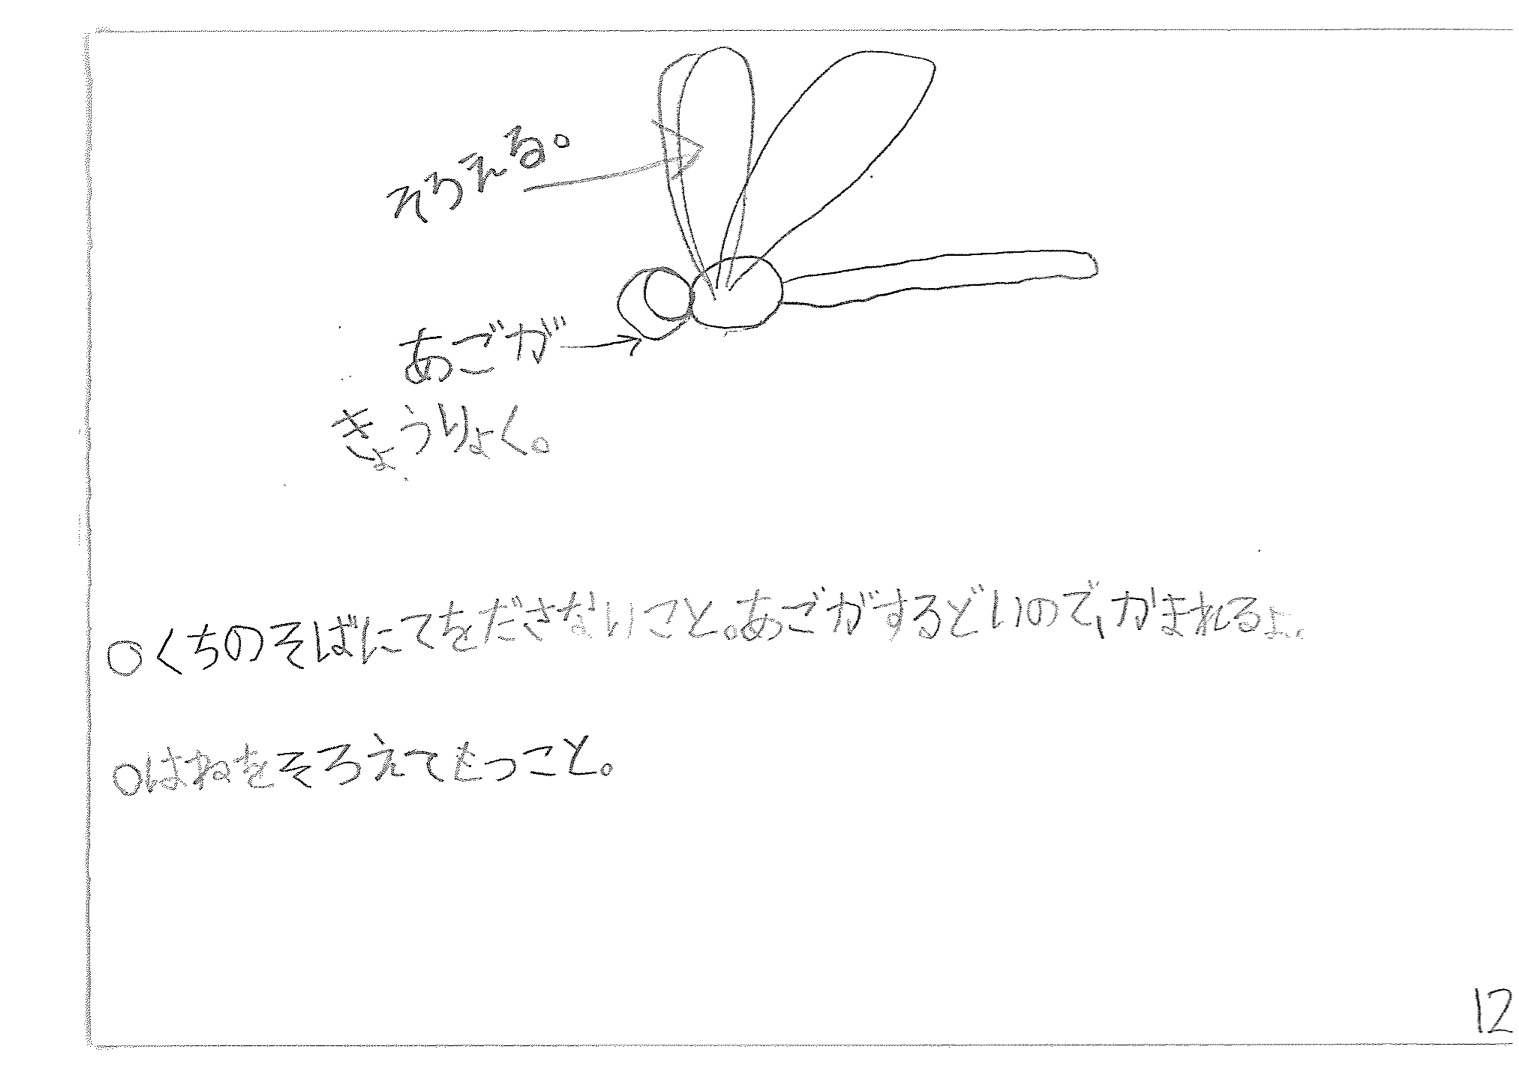 そろえる。
あごが
きょうりょく。
○くちのそばにてをださないこと。あごがするどいので、かまれるよ。
○はねをそろえてもつこと。
12